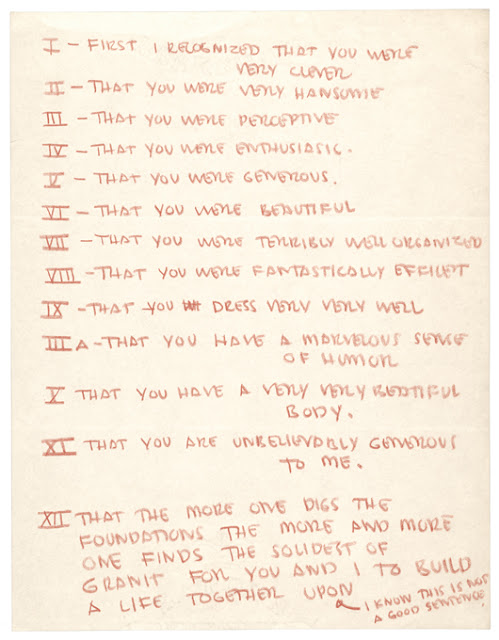 I – FIRST I RECOGNIZED THAT YOU WERE
VERY CLEVER
II – THAT YOU WERE VERY HANSOME
III – THAT YOU WERE PERCEPTIVE
IV – THAT YOU WERE ENTHUSIASIC.
V – THAT YOU WERE GENEROUS.
VI – THAT YOU WERE BEAUTIFUL
VII – THAT YOU WERE TERRIBLY WELL ORGANIZED
VIII – THAT YOU WERE FANTASTICALLY
IX – THAT YOU DRESS VERY VERY WELL
III A – THAT YOU HAVE A MARVELOUS SENSE
OF HUMOR
X THAT YOU HAVE A VERY VERY BEAUTIFUL
BODY.
XI THAT YOU ARE UNBELIEVABLY GENEROUS
TO ME.
XII THAT THE MORE ONE DIGS THE
FOUNDATIONS THE MORE AND MORE
ONE FINDS THE SOLIDEST OF
GRANIT FOR YOU AND I TO BUILD
A LIFE TOGETHER UPON
I KNOW THIS IS NOT
A GOOD SENTENCE.